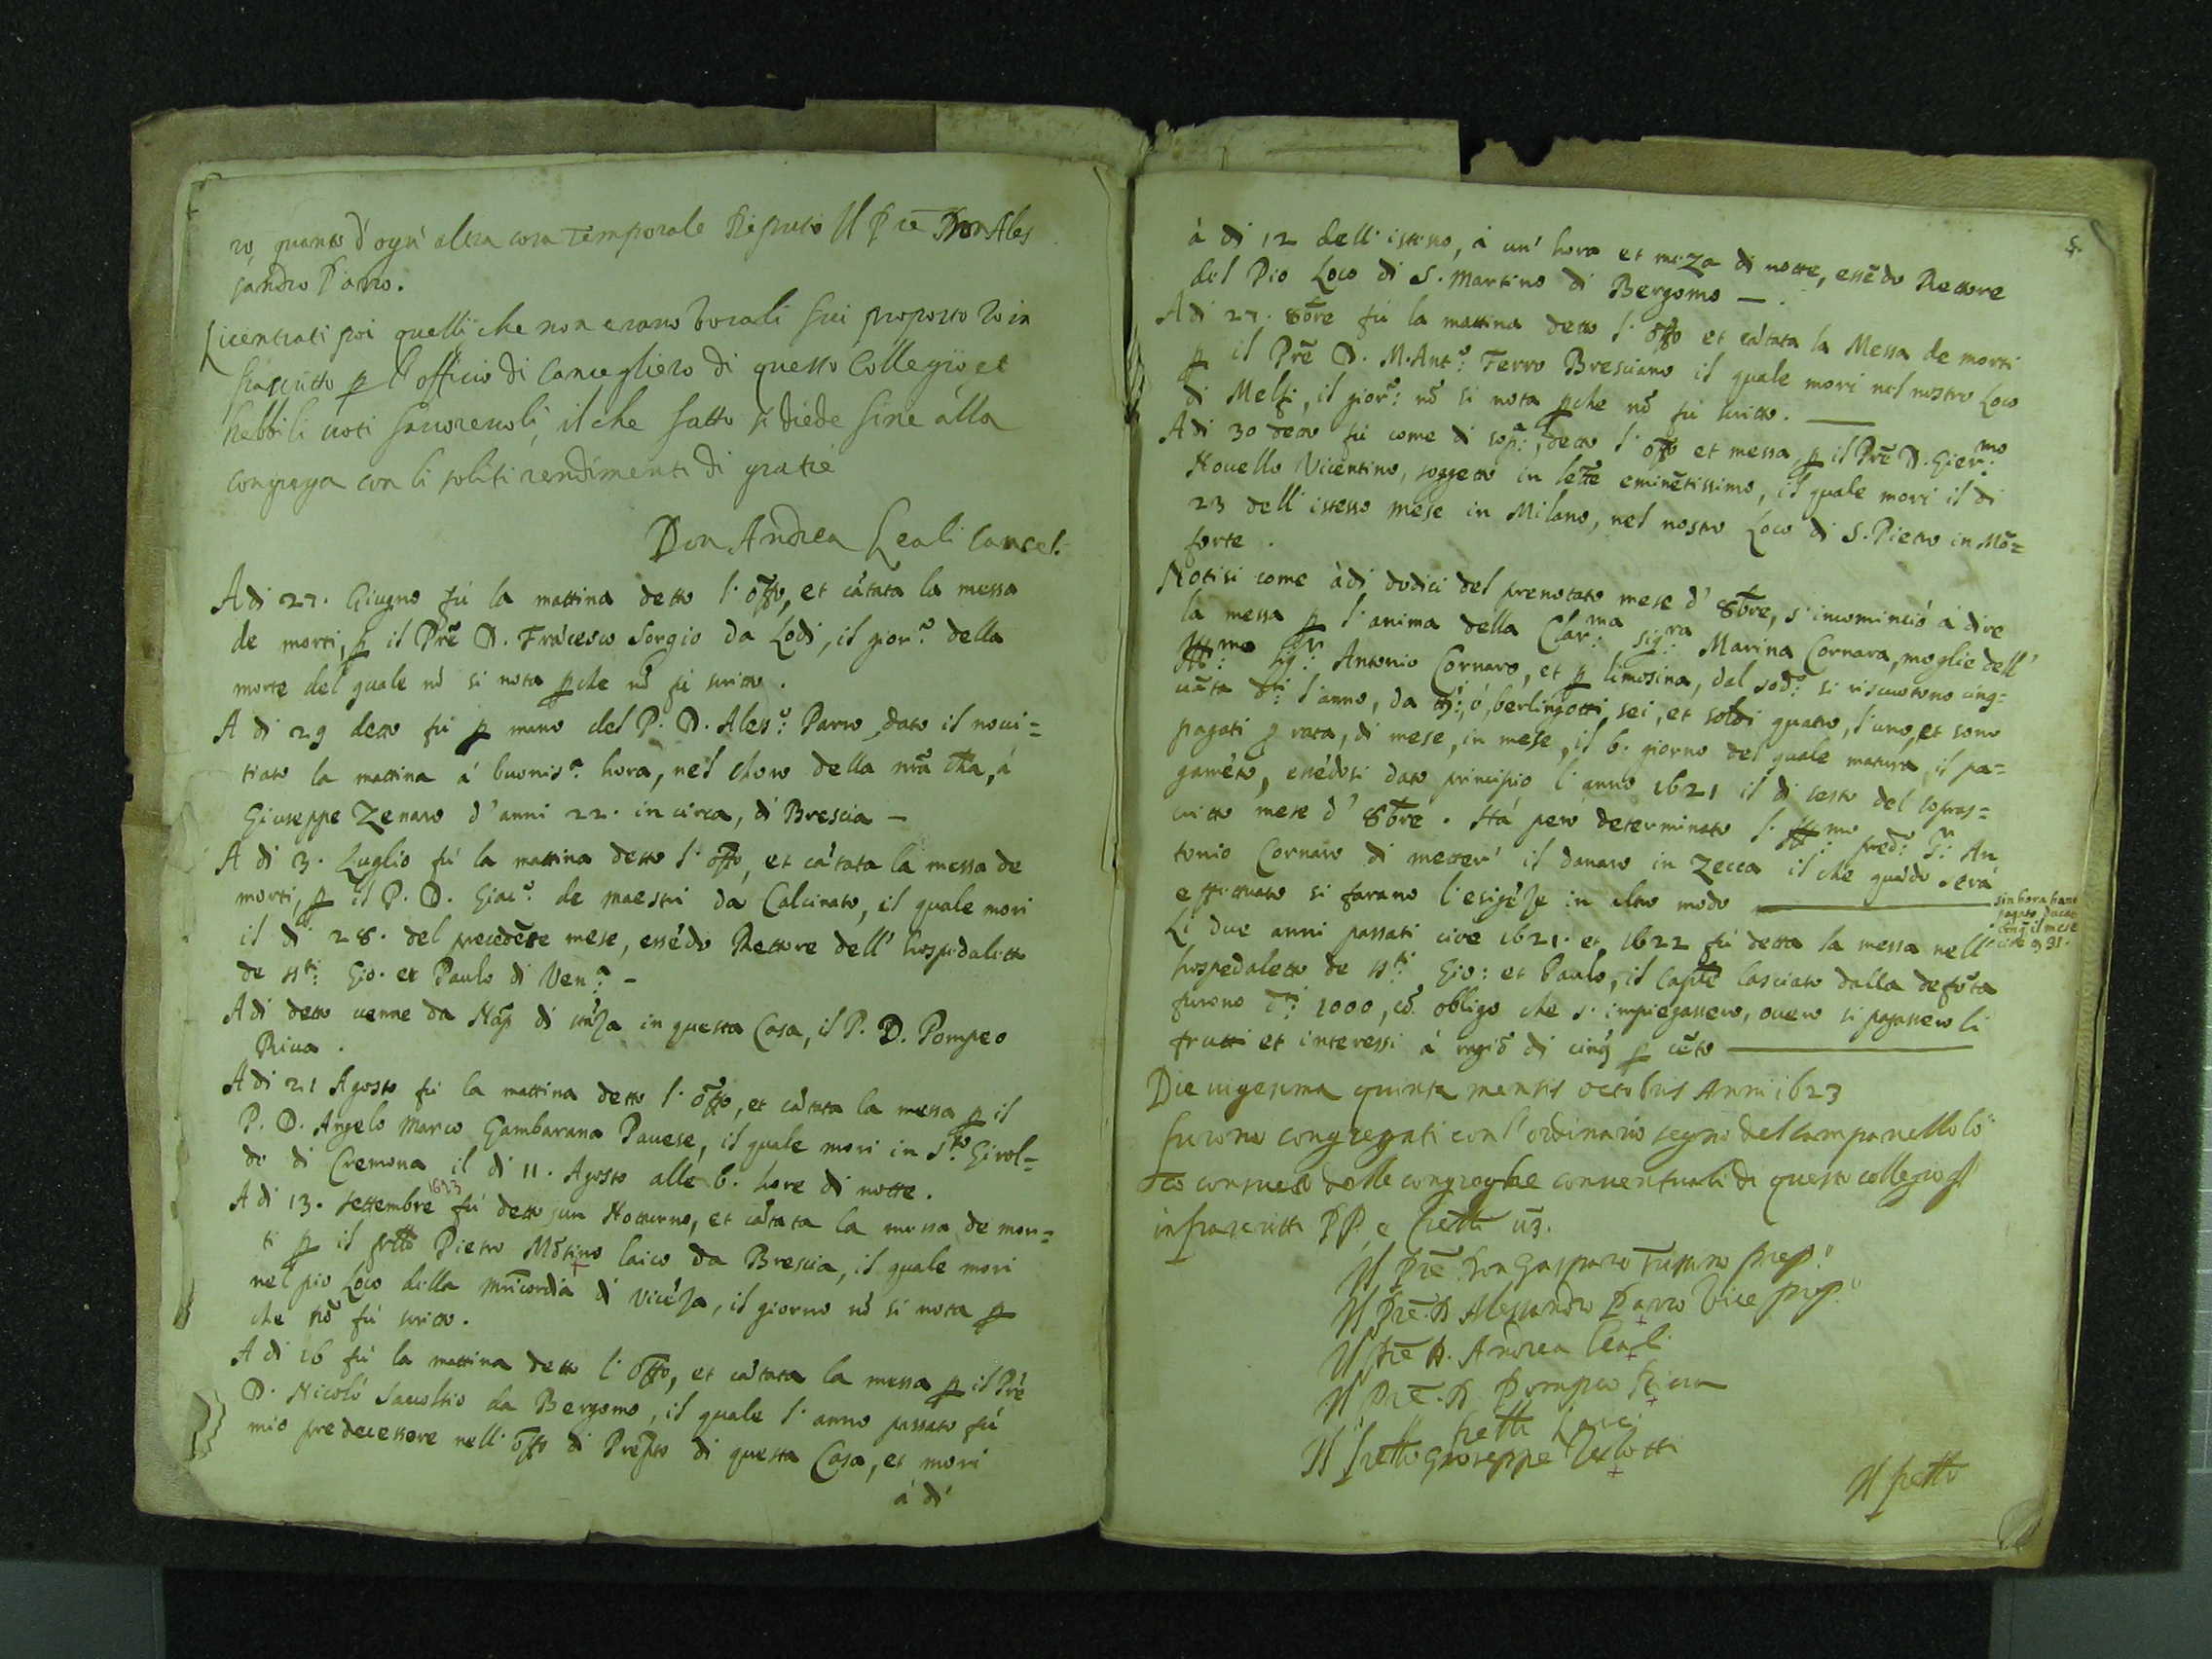 ro, quanto d'ogn' altra cosa temporale Deputo Il Prē Don Ales
sandro Parro.
Licentiati poi quelli che non erano vocali fui proposto Io in
frascritto p l'officio di Cancegliero di questo Collegio, et
hebbi li voti favorevoli, il che fatto si diede fine alla
congrega con li soliti rendimenti di gratie
Don Andrea Leali Cancel.
A di 27. Giugno fù la mattina detto l'offo, et cātata la messa
de morti, p il Prē D. Frācesco Sorgio da Lodi, il gior.º della
morte del quale nō si nota pche nō fù scritto.
A di 29 detto fù p mano del P. D. Aless.º Parro dato il novi=
tiato la mattina à buoniss.ª hora, nel choro della nrā Chā, à
Giuseppe Zenaro d'anni 22. in circa, di Brescia —
A di 3. Luglio fù la mattina detto l'offo, et cātata la messa de
morti, p il P. D. Giac.º de maestri da Calcinato, il quale morì
il dì 28. del precedēte mese, essēdo Rettore dell' hospidaletto
de ss.ti Gio. et Paulo di Ven.ª —
A di detto venne da Nap. di stāza in questa Casa, il P. D. Pompeo
Riva.
A di 21 Agosto fù la mattina detto l'offo, et cātata la messa p il
P. D. Angelo Marco Gambarana Pavese, il quale morì in S.to Girol=
do di Cremona il dì 11. Agosto alle 6. hore di notte.
A di 13. settembre 1623 fù detto un Notturno, et cātata la messa de mor=
ti p il frtto Pietro Mōtino laico da Brescia, il quale morì
nel pio Loco della Mricordia di Vicēza, il giorno nō si nota p
che nō fù scritto.
A di 16 fù la mattina detto l'offo, et cātata la messa p il Prē
D. Nicolò Sacoltio da Bergomo, il quale l'anno passato fù
mio predecessore nell'offo di Prepto di questa Casa, et morì
à dì
5.
à di 12 dell' istesso, à un' hora et meza di notte, essēdo Rettore
del Pio Loco di S. Martino di Bergomo —.
A di 27. 8bre fù la mattina detto l'offo et cātata la Messa de morti
p il Prē D. M. Ant.º Ferro Bresciano il quale morì nel nostro Loco
di Melfi, il gior.º nō si nota pche nō fù scritto.
A di 30 detto fù come di sop.ª, detto l'offo et messa, p il Prē D. Gier.mo
Novello Vicentino, soggetto in lettre eminētissimo, il quale morì il dì
23 dell' istesso mese in Milano, nel nostro Loco di S. Pietro in Mō=
forte.
Notisi come à di dodici del prenotato mese d' 8bre, s'incominciò à dire
la messa p l'anima della Clar.ma Sig.ra Marina Cornara, moglie dell'
Ill.mo Sig.r Antonio Cornaro, et p limosina, dal sod.º si riscuotono cinq=
uāta d.ti l'anno, da , ò, berlingotti, sei, et soldi quatro, l'uno, et sono
pagati p rata, di mese, in mese, il 6. giorno del quale matura, il pa=
gamēto, essēdosi dato principio l'anno 1621 il dì sesto del sopras=
critto mese d' 8bre. Hà però determinato l'Ill.mo pred.º S.r An
tonio Cornaro di metter' il danaro in Zecca il che quādo serà
effettuato si farano l'esigēze in altro modo
sin hora hano
pagato ducati
cinq il mese
cioè 31.
Li due anni passati cioè 1621. et 1622 fù detta la messa nell'
hospedaletto de ss.ti Gio: et Paulo, il Capitle lasciato dalla defūta
furono d.ti 1000, cō obligo che s'impiegassero, overo si pagassero li
frutti et interessi à ragiō di cinq p cēto
Die vigesima quinta mensis octobris Anni 1623
furono congregati con l'ordinario segno del campanello lo
co consueto delle congreghe conventuali di questo collegio gl'
infrascritti PP. e fretti
Il Prē. Don Gasparo Trissino prep.to
Il Prē. D. Alessandro Parro Vice prep.to
Il Prē D. Andrea Leali
Il Prē. D. Pompeo Riva
fretti Laici
Il fretto Gioseppe Verlotti
Il fretto